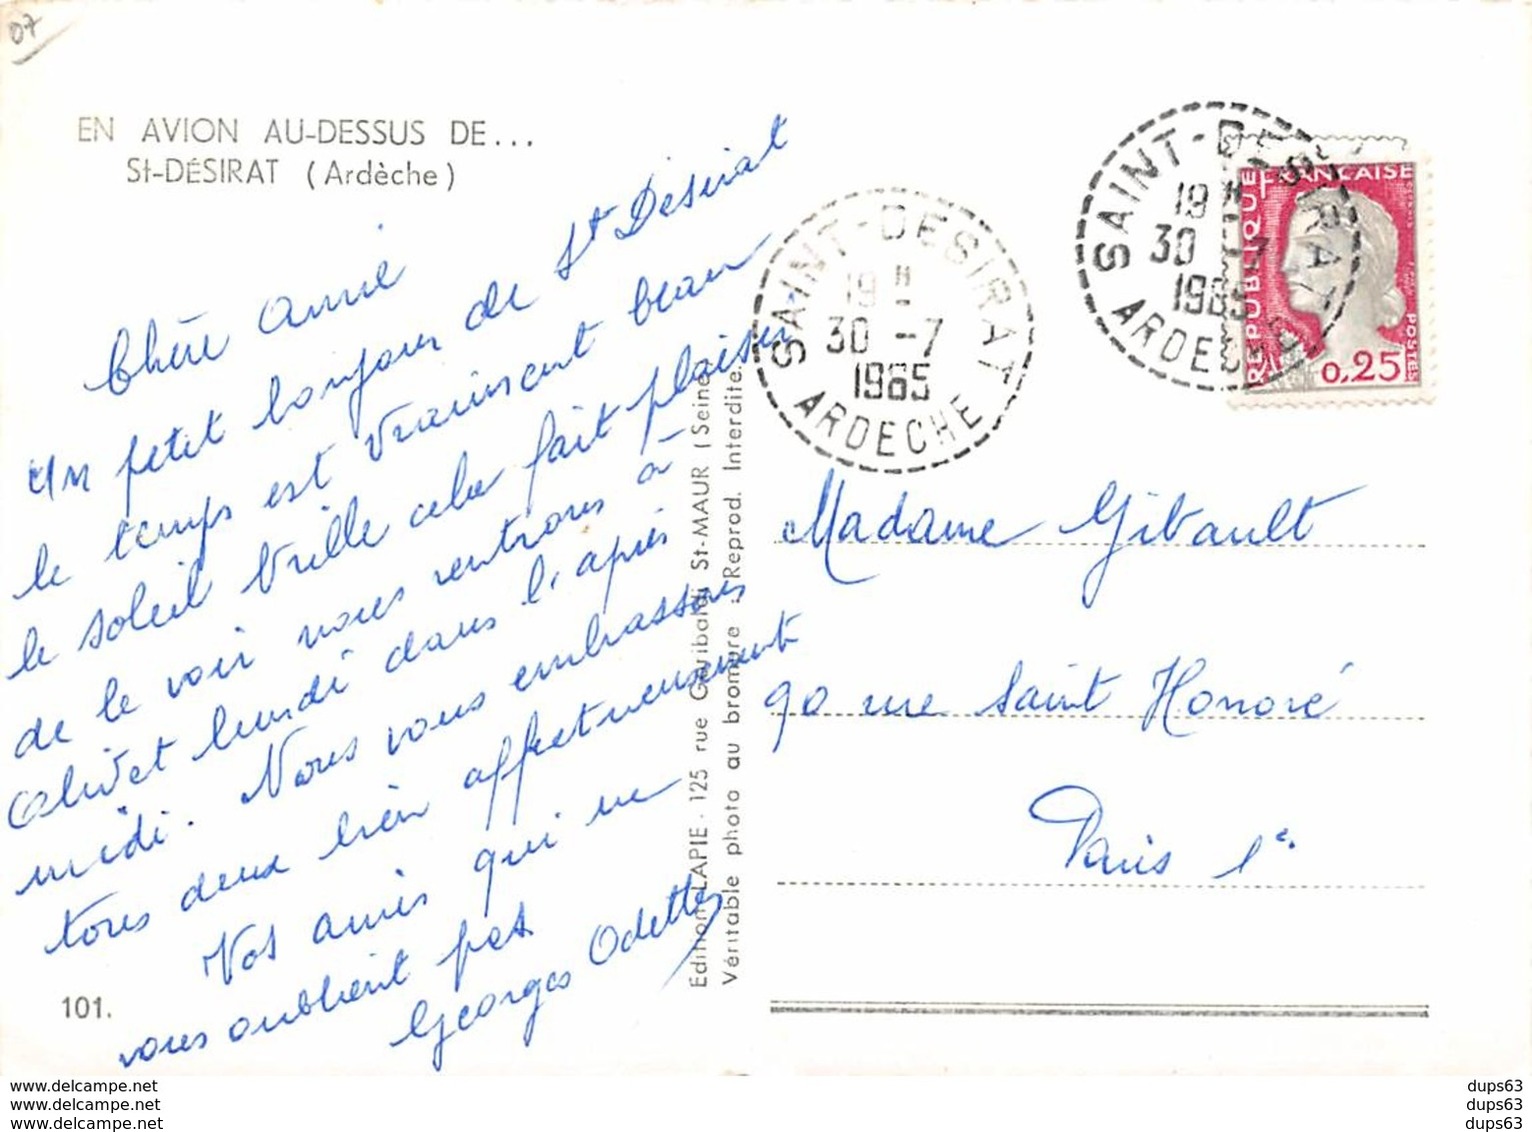 07
EN AVION AU-DESSUS DE...
St-DÉSIRAT (Ardèche)
Chère Amie
Un petit bonjour de St Désirat
le temps est vraiment beau
le soleil brille cela fait plaisir
de le voir nous rentrons à
lundi dans l'après
midi. Nous vous embrassons
tous deux bien affectueusement
Vos amis qui ne
vous oublient pas
Georges Odette
101.
Edition LAPIE - 125 rue Garibaldi St-MAUR (Seine)
Véritable photo au bromure - Reprod. Interdite.
SAINT-DESIRAT
19 H
30 -7
1965
ARDECHE
SAINT-DESIRAT
19 H
30 -7
1965
ARDECHE
REPUBLIQUE FRANÇAISE
POSTES
0,25
Madame Gibault
90 rue Saint Honoré
Paris 1er
www.delcampe.net
www.delcampe.net
www.delcampe.net
dups63
dups63
dups63